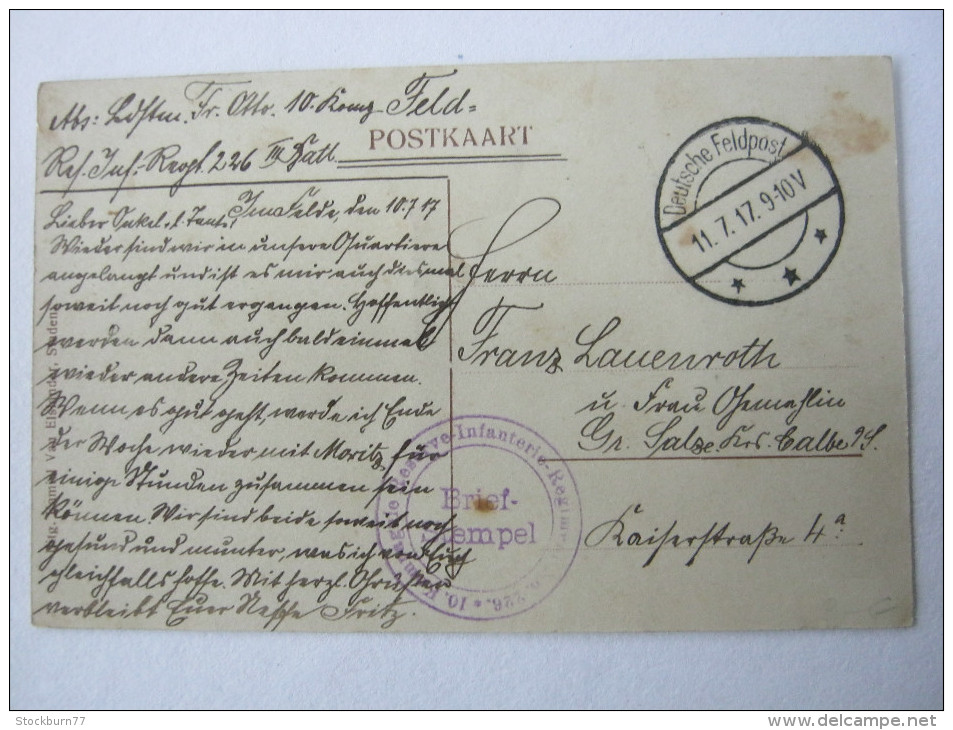 Abs: Ldstm. Fr. Otto. 10. Komp. Feld=
POSTKAART
Res. Inf.-Regt. 226 III Batl.
Im Felde, den 10.7.17
Lieber Onkel, l. Tante,
Wieder sind wir in unsere Quartiere
angelangt und ist es mir auch diesmal
soweit noch gut ergangen. Hoffentlich
werden dann auch bald einmal
wieder andere Zeiten kommen.
Wenn es gut geht, werde ich Ende
der Woche wieder mit Moritz für
einige Stunden zusammen sein
können. Wir sind beide soweit noch
gesund und munter, was ich von Euch
gleichfalls hoffe. Mit herzl. Grüßen
verbleibt Euer Neffe Fritz.
Deutsche Feldpost
11. 7. 17. 9-10 V
Herrn
Franz Lauenroth
u. Frau Gemahlin
Gr. Salze Krs. Calbe a/S.
Kaiserstraße 4a
Reserve-Infanterie-Regiment
226. * 10.
Brief-
stempel
Stockburn77
delcampe.net